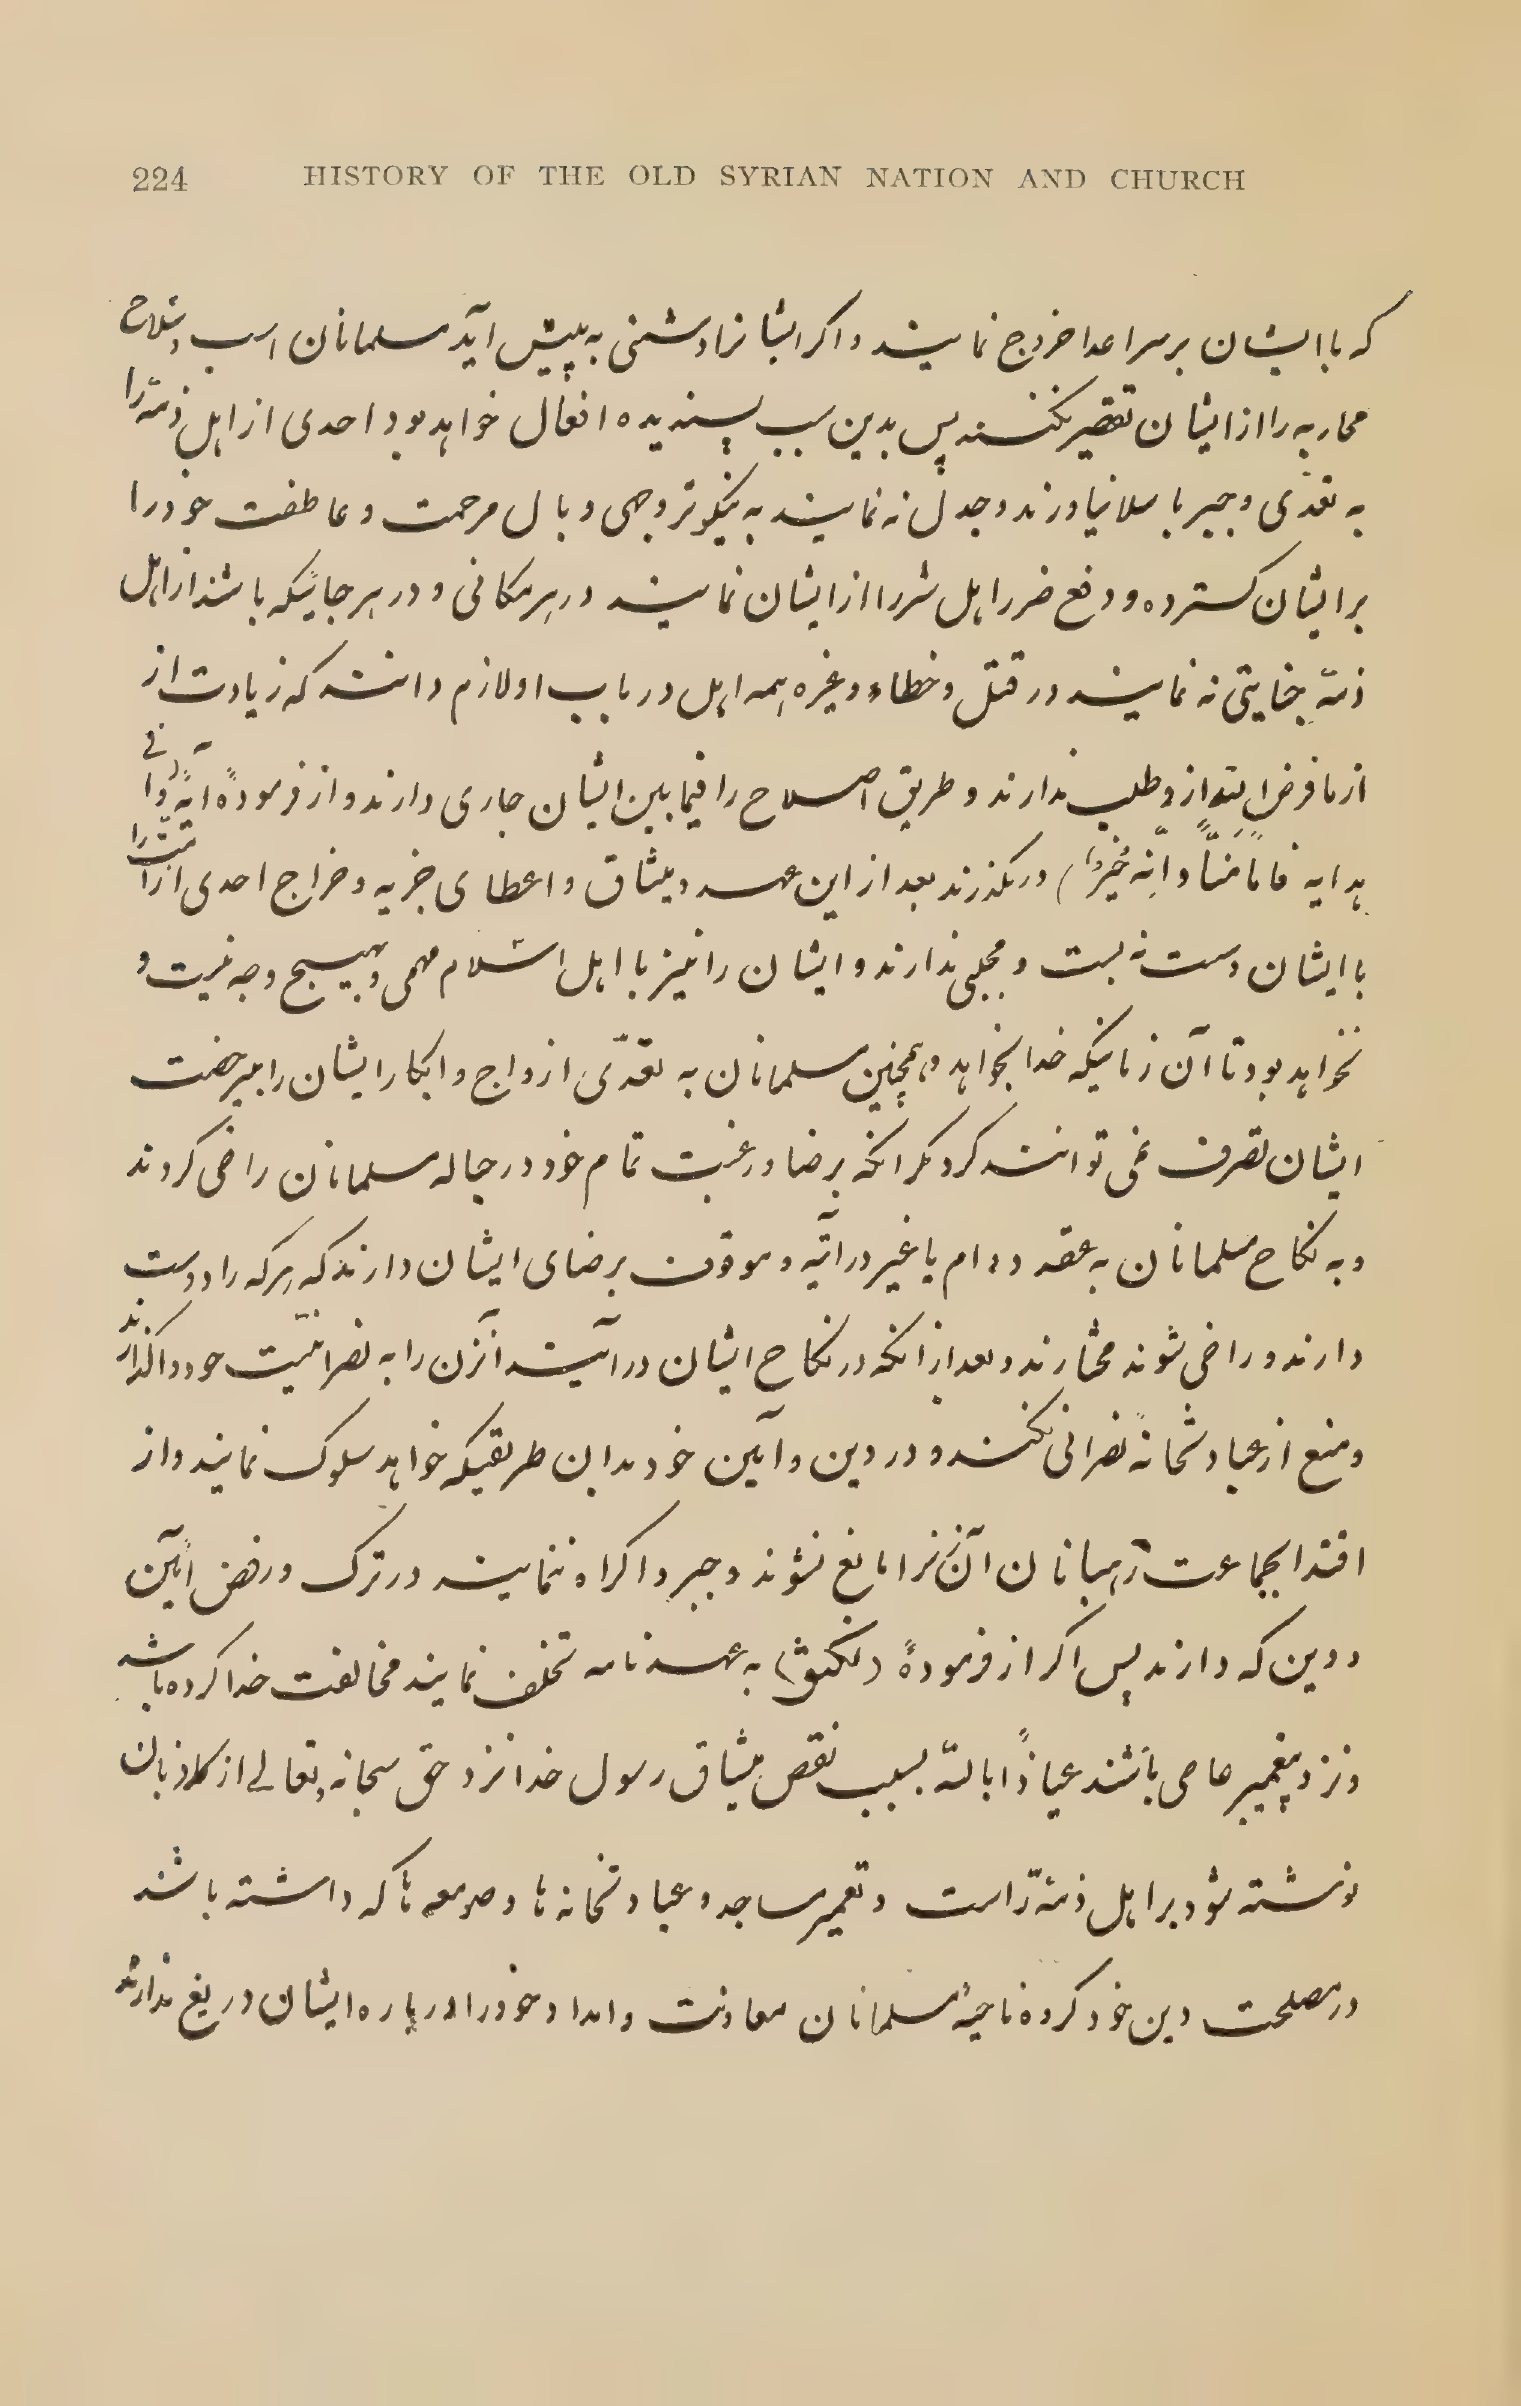 224 HISTORY OF THE OLD SYRIAN NATION AND CHURCH
که با ایشان بر سر اعدا خروج نمایند و اکر ایشانرا دشمنی به پیش آید مسلمانان اسب و سلاح
محاربه را از ایشان تقصیر نکنند پس بدین سبب پسندیده افعال خواهد بود احدی از اهل ذمّه را
به تعدّی و جبر با سلا نیاورند و جدل نه نمایند به نیکوتر وجهی و بال مرحمت و عاطفت خود را
بر ایشان کسترده و دفع ضرر اهل شر را از ایشان نمایند در هر مکانی و در هر جائیکه باشند از اهل
ذمّه جنایتی نه نمایند در قتل و خطاء و غیره همه اهل در باب او لازم دانند که زیادت از
از ما فرض الله از و طلب ندارند و طریق اصلاح را فیما بین ایشان جاری دارند و از فرمودهٔ
هدایه فامّا منّاً و در نکذرند بعد از این عهد و میثاق و اعطای جزیه و خراج احدی از امّت را
با ایشان دست نه بست و ندارند و ایشان را نیز با اهل اسلام مهمی و بهیچ وجه و
نخواهد بود تا آن زمانیکه خدا بخواهد و همچنین مسلمانان به تعدّی ازواج و ابکار ایشان را بیرخصت
ایشان تصرف نمی توانند کرد مکر انکه برضا و رغبت تمام خود در حباله مسلمانان راضی کردند
و به نکاح مسلمانان به عقد دوام یا غیر در آیه و موقوف برضای ایشان دارند که هر که را دوست
دارند و راضی شوند مختارند و بعد از انکه در نکاح ایشان در آیند آنزن را به نصرانیّت خود واکذارند
و منع از عبادتخانهٔ نصرانی نکنند و در دین و آیین خود بدان طریقیکه خواهد سلوک نمایند و از
اقتدا بجماعت رهبانان آن زنرا مانع نشوند و جبر و اکراه ننمایند در ترک و رفض آیین
و دین که دارند پس اکر از فرمودهٔ به عهدنامه تخلف نمایند مخالفت خدا کرده باشد
و نزد پیغمبر عاصی باشند عیاذاً بالله بسبب نقص میثاق رسول خدا نزد حق سبحانه و تعالے از کاذبان
نوشته شود بر اهل ذمّه راست و تعمیر مساجد و عبادتخانه ها و صومعه ها که داشته باشند
در مصلحت دین خود کرده ناحیهٔ مسلمانان معاونت و امداد خود را در باره ایشان دریغ ندارند